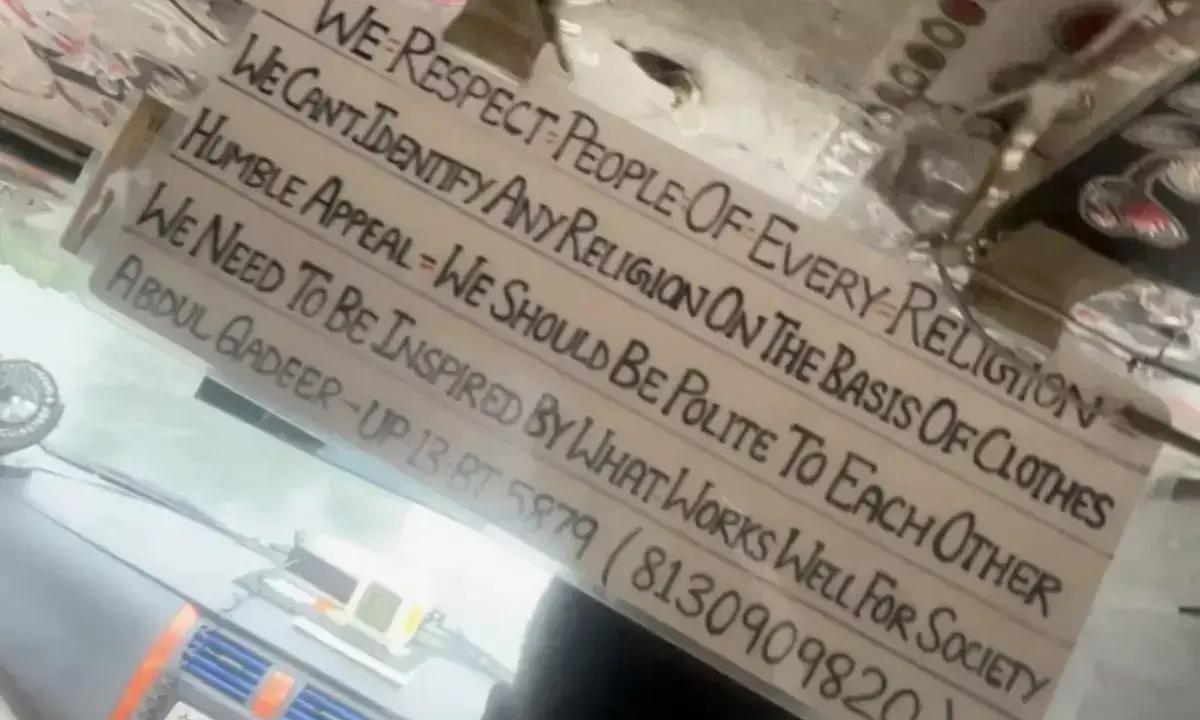 WE=RESPECT=PEOPLE=OF=EVERY=RELIGION
WE CANT IDENTIFY ANY RELIGION ON THE BASIS OF CLOTHES
HUMBLE APPEAL = WE SHOULD BE POLITE TO EACH OTHER
WE NEED TO BE INSPIRED BY WHAT WORKS WELL FOR SOCIETY
ABDUL QADEER - UP 13 BT 5879 (8130909820)